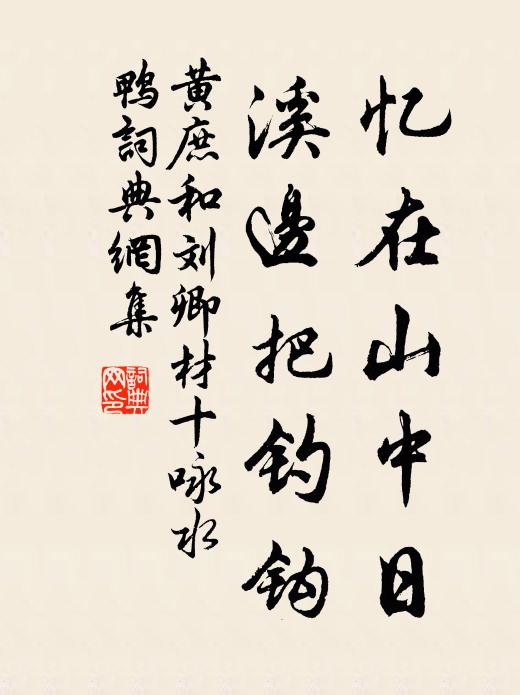 忆在山中日
溪邊把钓钩
黃庶和刘卿材十咏水
鸭詞典網集
詞典网印